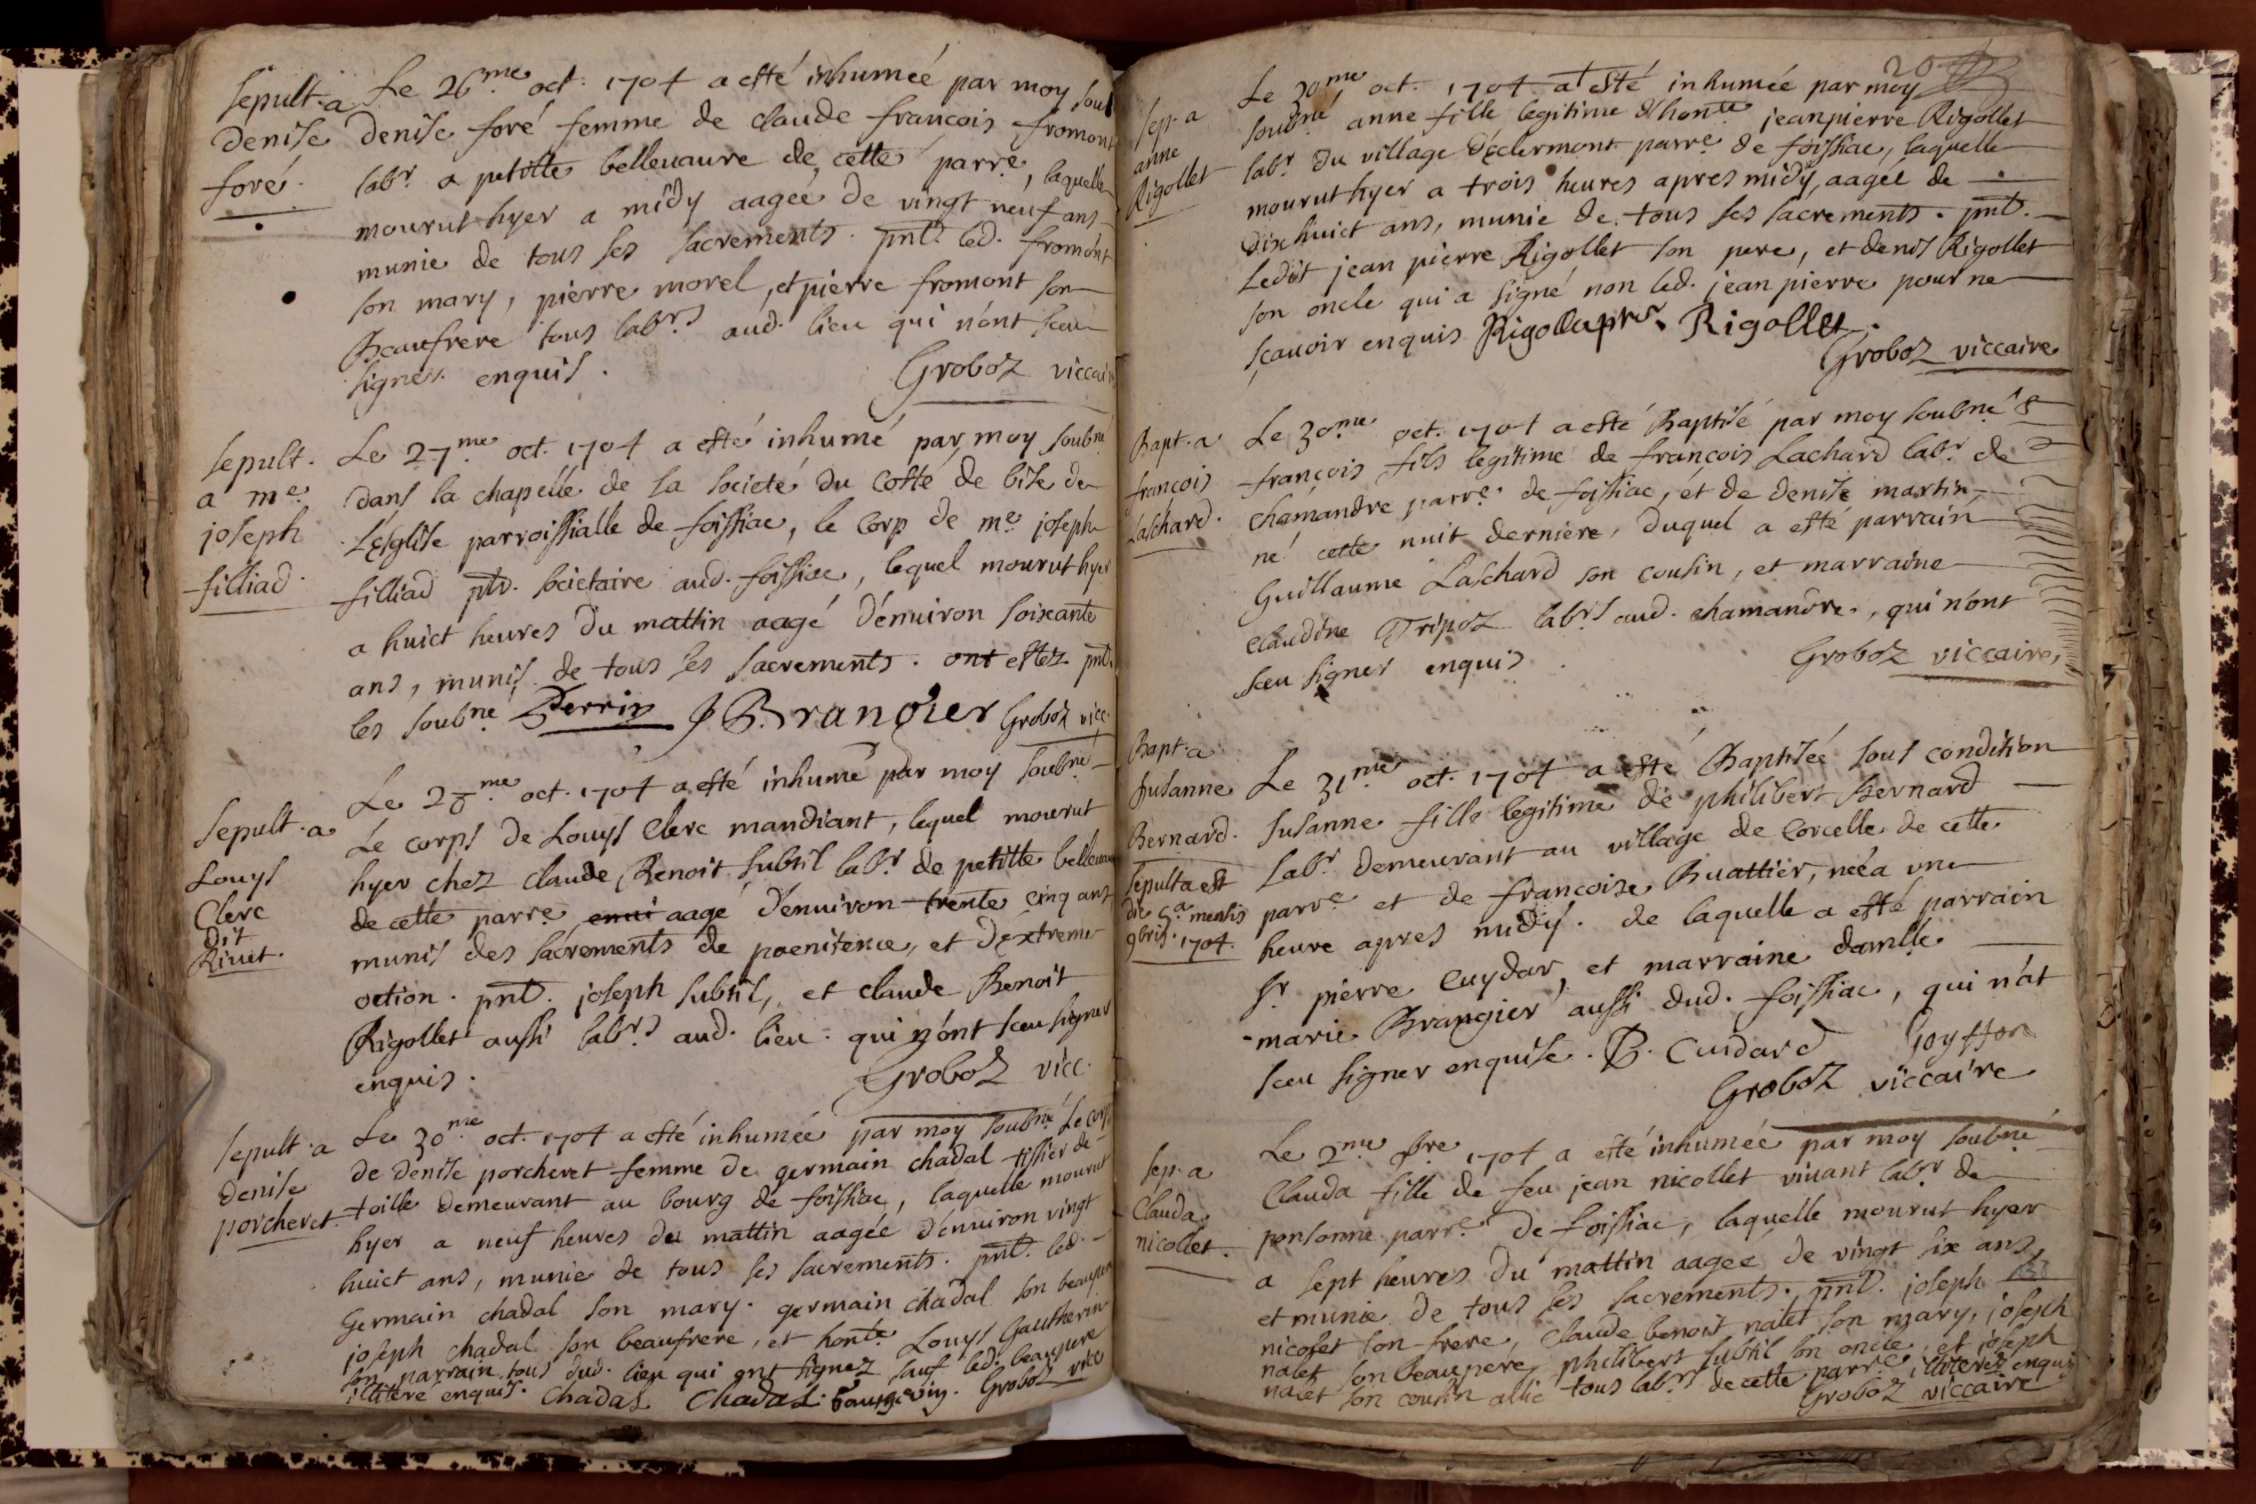 Sepult. a
Denise
foré.
Le 26.me oct. 1704 a esté inhumeé par moy soub
Denise foré femme de claude francois fromont
labr. a petitte belleuaure de cette parre, laquelle
mourut hyer a midy aageé de vingt neuf ans
munie de tous ses sacrements. pnt. led. fromont
son mary, pierre morel, et pierre fromont son
Beaufrere tous labrs. aud. lieu qui n'ont sceu
signer enquis.
Groboz viccair
Sepult.
a me.
joseph
filliad.
Le 27.me oct. 1704 a esté inhumé par moy soubné
dans la chapelle de la societé du costé de bise de
L'esglise parroissialle de foissiac, le corp de me. joseph
filliad ptr. societaire aud. foissiac, lequel mourut hyer
a huict heures du mattin aagé d'enuiron soixante
ans, munis de tous ses sacrements. ont estez pnt.
les soubné Perrin J Brangier Groboz vicc.
Sepult. a
Louys
Clerc
dit
Riuet.
Le 28.me oct. 1704 a esté inhumé par moy soubné
Le corps de Louys Clerc mandiant, lequel mourut
hyer chez claude Benoit subtil labr. de petitte belleuau
de cette parre. enui aagé d'enuiron trente cinq ans
munis des sacrements de poenitence, et d'extreme
oction. pnt. joseph subtil, et claude Benoit
Rigollet aussi labrs. aud. lieu. qui n'ont sceu signer
enquis.
Groboz vicc.
Sepult. a
denise
porcheret.
Le 30.me oct. 1704 a esté inhumée par moy soubné Le corp
de denise porcheret femme de germain chadal tissier de
toille demeurant au bourg de foissiac, laquelle mourut
hyer a neuf heures du mattin aagée d'enuiron vingt
huict ans, munie de tous ses sacrements. pnt. led.
Germain chadal son mary. germain chadal son beaupere
joseph chadal son beaufrere, et honte. Louys Gautherin
son parrain tous dud. lieu qui ont signez sauf led. beaupere
illitere enquis. Chadal Chadal Groboz vicc
20
Sep. a
anne
Rigollet
Le 30me oct. 1704 a esté inhumée par moy
soubné anne fille legitime d'honte jeanpierre Rigollet
labr. du village d'eclermont parre de foissiac, laquelle
mourut hyer a trois heures apres midy, aageé de
dixhuict ans, munie de tous ses sacrements. pnt.
Ledit jean pierre Rigollet son pere, et denis Rigollet
son oncle qui a signé non led. jean pierre pour ne
sçauoir enquis Rigollet Rigollet.
Groboz viccaire
Bapt. a
françois
Laschard.
Le 30.me oct. 1704 a esté Baptisé par moy soubné
françois fils legitime de françois Lachard labr. de
chamandre parre. de foissiac, et de denise martin
né cette nuit derniere, duquel a esté parrain
Guillaume Laschard son cousin, et marraine
claudine Tripoz labrs aud. chamandre, qui n'ont
sceu signer enquis.
Groboz viccaire,
Bapt. a
Susanne
Bernard.
Sepulta est
die 5.a mensis
9bris. 1704.
Le 31.me oct. 1704 a esté Baptisée sous condition
Susanne fille legitime de philibert Bernard
Labr demeurant au village de Corcelle de cette
parre et de francoise Buattier, née a une
heure apres midy. de laquelle a esté parrain
Sr. pierre Cuydar, et marraine damlle.
marie Brangier aussi dud. foissiac, qui n'at
sceu signer enquise. P. Cuidard Goyffon
Groboz viccaire
Sep. a
Clauda
nicollet.
Le 2.me 9bre 1704 a esté inhumée par moy soubné
Clauda fille de feu jean nicollet viuant labr de
ponsonne parre. de foissiac, laquelle mourut hyer
a sept heures du mattin aageé de vingt six ans,
et munie de tous ses sacrements. pnt. joseph
nicolet son frere, claude benoit nalet son mary, joseph
nalet son beaupere, philibert subtil son oncle, et joseph
nalet son cousin allié tous labrs de cette parre. illiterez enquis
Groboz viccaire